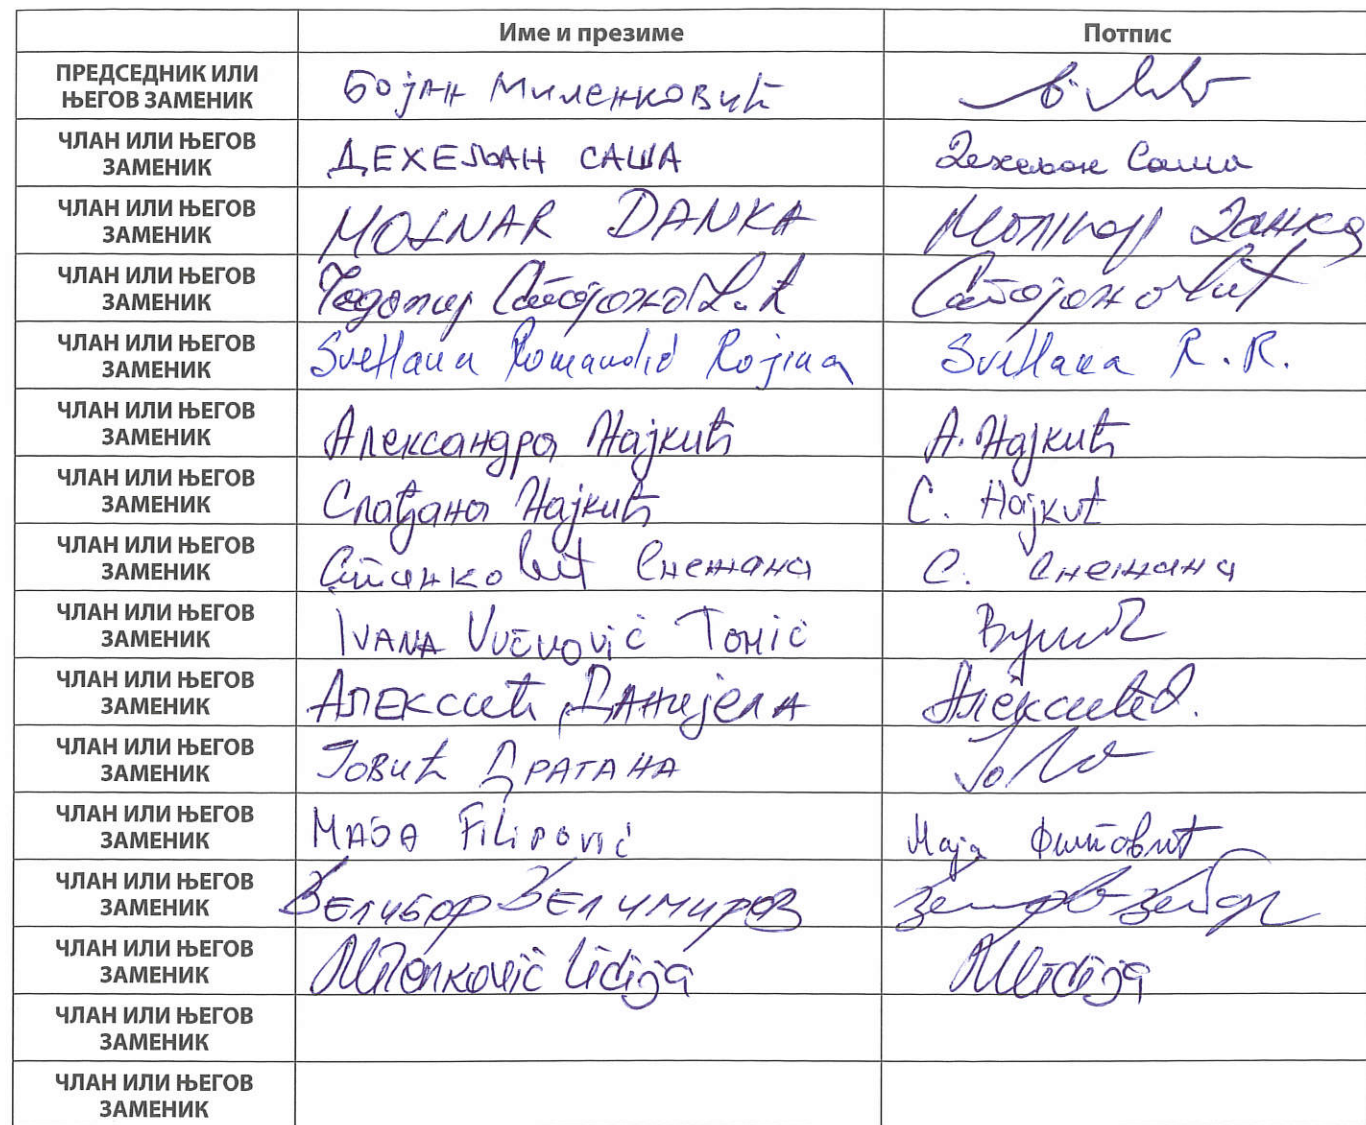 Име и презиме Потпис
ПРЕДСЕДНИК ИЛИ
ЊЕГОВ ЗАМЕНИК
Бојан Миленковић
ЧЛАН ИЛИ ЊЕГОВ
ЗАМЕНИК
ДЕХЕЉАН САША Дехељан Саша
ЧЛАН ИЛИ ЊЕГОВ
ЗАМЕНИК
MOLNAR DANKA Молнар Данка
ЧЛАН ИЛИ ЊЕГОВ
ЗАМЕНИК
Стојановић Стојановић
ЧЛАН ИЛИ ЊЕГОВ
ЗАМЕНИК
Svetlana Romandić Rojina Svetlana R. R.
ЧЛАН ИЛИ ЊЕГОВ
ЗАМЕНИК
Александра Најкић А. Најкић
ЧЛАН ИЛИ ЊЕГОВ
ЗАМЕНИК
Слађана Најкић С. Најкић
ЧЛАН ИЛИ ЊЕГОВ
ЗАМЕНИК
Станковић Снежана С. Снежана
ЧЛАН ИЛИ ЊЕГОВ
ЗАМЕНИК
IVANA Tomić
ЧЛАН ИЛИ ЊЕГОВ
ЗАМЕНИК
Алексић Данијела Алексић Д.
ЧЛАН ИЛИ ЊЕГОВ
ЗАМЕНИК
Јовић Драгана
ЧЛАН ИЛИ ЊЕГОВ
ЗАМЕНИК
Maja Filipović Маја Филиповић
ЧЛАН ИЛИ ЊЕГОВ
ЗАМЕНИК
Велибор Велимиров
ЧЛАН ИЛИ ЊЕГОВ
ЗАМЕНИК
Milenković Lidija MLidija
ЧЛАН ИЛИ ЊЕГОВ
ЗАМЕНИК
ЧЛАН ИЛИ ЊЕГОВ
ЗАМЕНИК